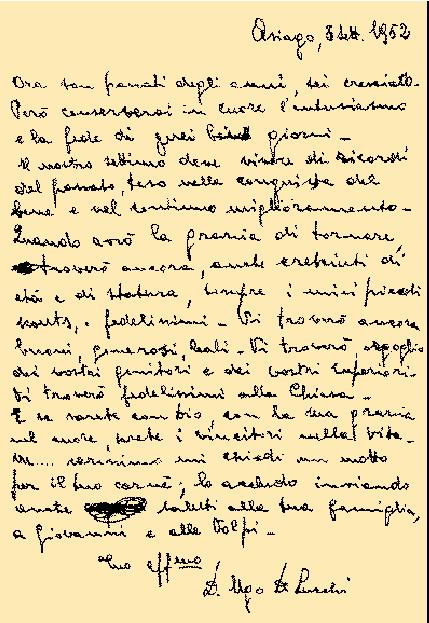 Asiago, 8 Sett. 1952
Ora son passati degli anni, sei cresciuto.
Però conserverai in cuore l'entusiasmo
e la fede di quei giorni -
Il nostro deve vivere di ricordi
del passato, teso nella conquista del
bene e nel continuo miglioramento.
Quando avrò la grazia di tornare,
troverò ancora, anche cresciuti di
età e di statura, sempre i miei piccoli
scouts, fedelissimi - Vi troverò ancora
buoni, generosi, leali - Vi troverò orgoglio
dei vostri genitori e dei vostri Superiori.
Vi troverò fedelissimi alla Chiesa -
E se sarete con Dio, con la sua grazia
nel cuore, sarete i vincitori nella vita -
.... carissimo mi chiedi un motto
per il tuo carnè; lo accludo inviando
saluti alla tua famiglia,
a Giovanni e alle Volpi -
Tuo aff.mo
D. Ugo